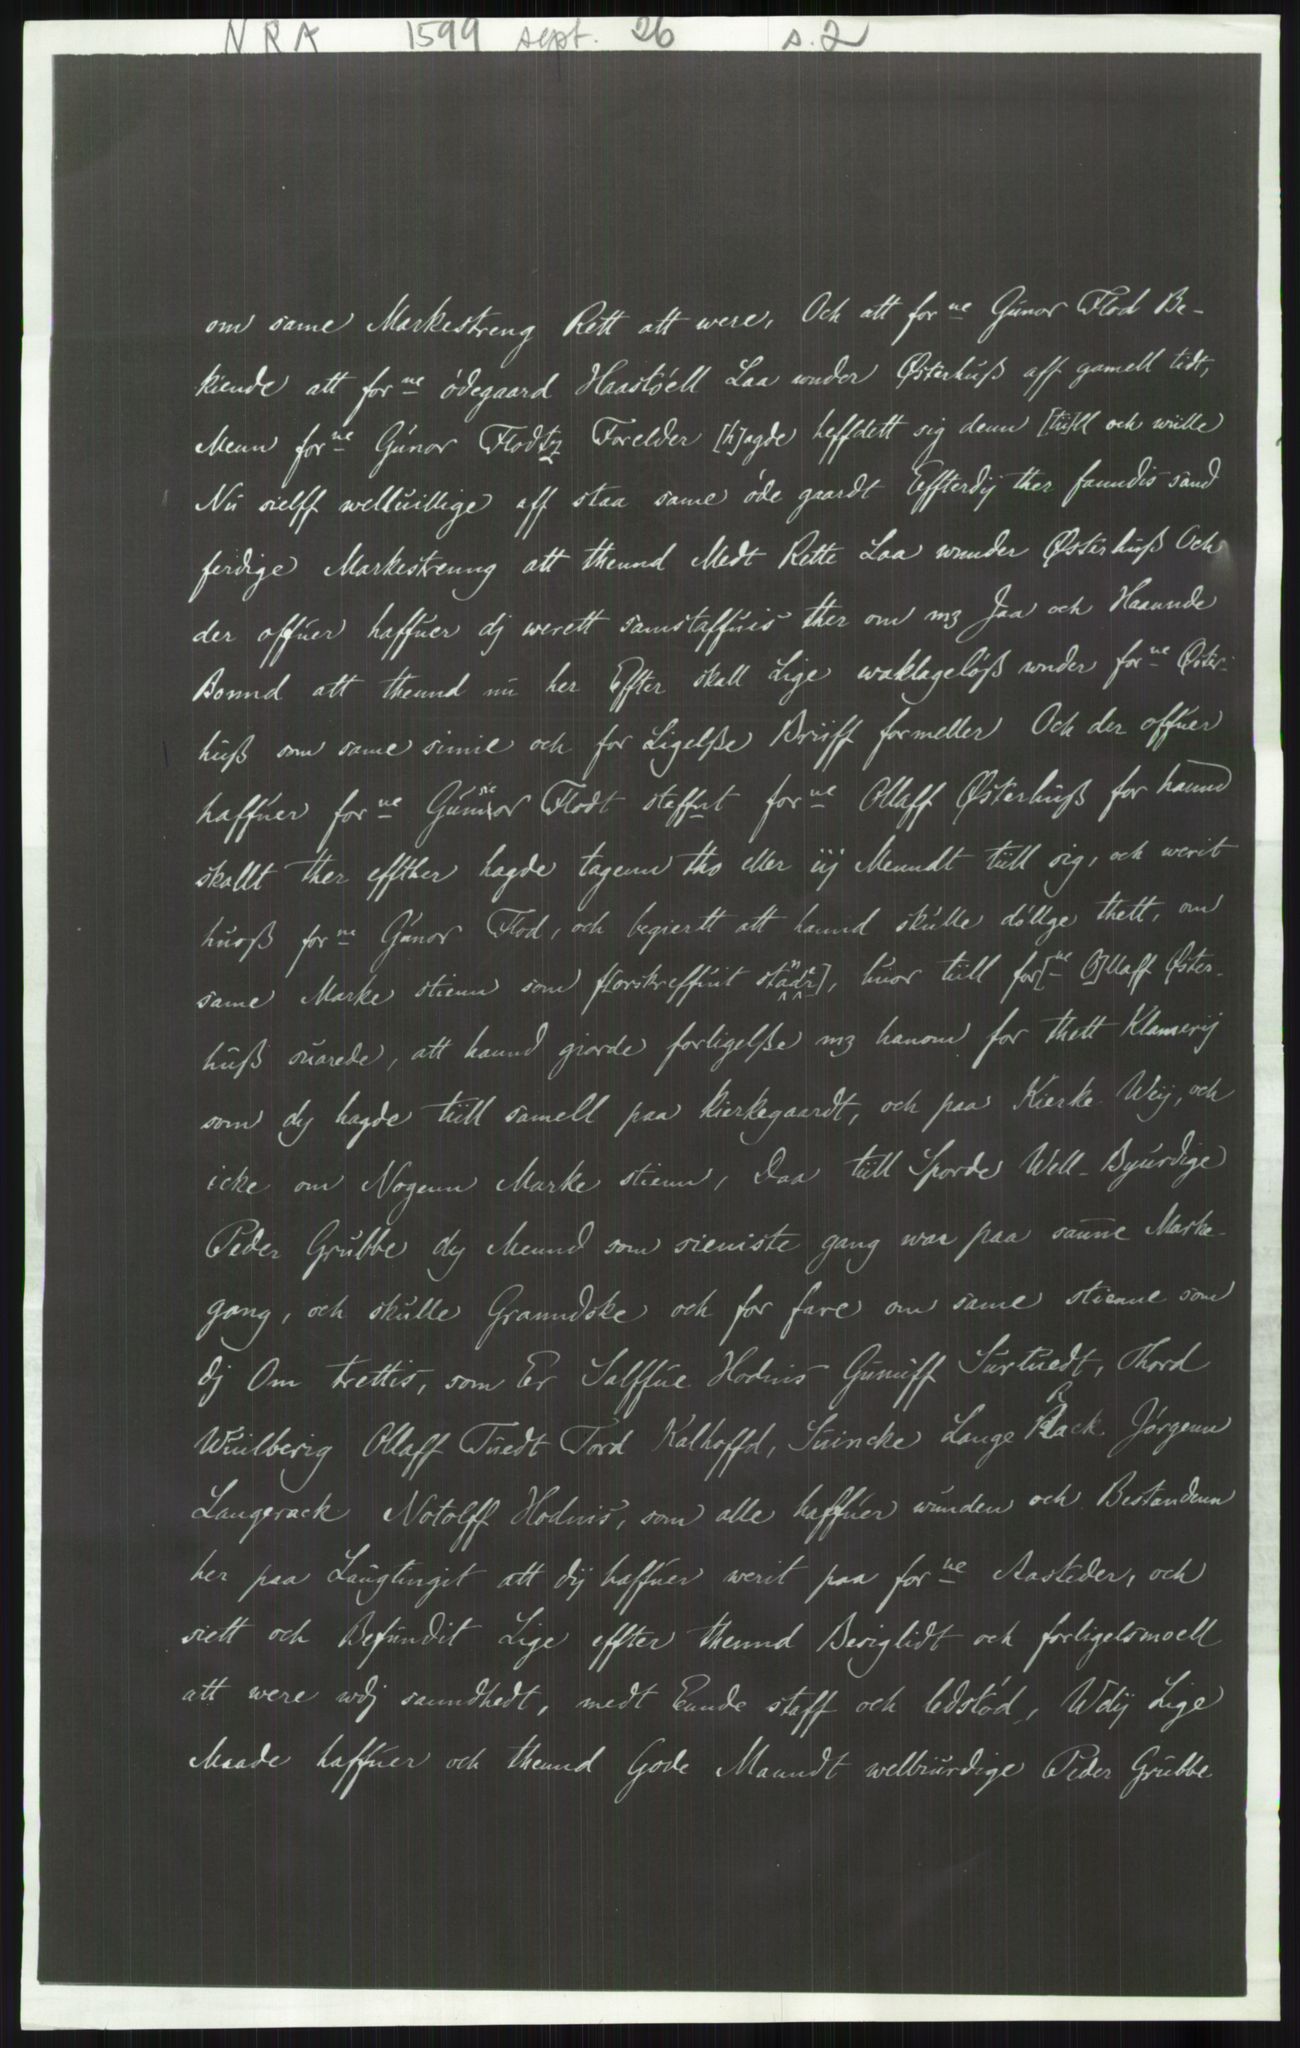 NRA 1599 sept. 26 s. 2
om same Markestreng Rett att were, Och att for ne Gunor Flod Be-
kiende att for ne ödegaard Haastöell Laa wnder Østerhuß aff gamell tidt,
Menn for ne Gunor Flodtz Forelder [h]agde heffdett sig denn [tii]ll och wille
Nu sielff welluillige aff staa same öde gaardt Effterdij ther fanndis sand
ferdige Markestrenng att thennd Medt Rette Laa wnnder Østerhuß Och
der offuer haffuer dj werett samstaffuis ther om mz Jaa och Haannde
Bonnd att thennd nu her Effter skall Lige waklagelöß wnder for ne Øster-
huß som same simie och for Ligelße Briiff formeller Och der offuer
haffuer for ne Gunnor sic Flodt steffnt for ne Ollaff Østerhuß for hannd
skallt ther effther hagde tagenn tho eller iij Menndt tiill sig, och werit
huoß for ne Gunor Flod, och begiertt att hannd skulle döllge thett, om
same Marke stienn som f[orskreffuit sta n d e r], huor tiill for[ ne O]llaff Øster-
huß suarede, att hannd giorde forligelße mz hanom for thett Klamerij
som dy hagde tiill samell paa kierkegaardt, och paa Kierke Weij, och
icke om Nogenn Marke stienn, Daa tiill Sporde Well-Byurdige
Peder Grubbe dy Mennd som sieniste gang war paa same Marke-
gang, och skulle Granndske och for fare om same stienne som
dj Om trettis, som Er Salffue Hodnis Gunuiff Surtuedt, Thord
Wuilberig Ollaff Tuedt Tord Kalhoffd, Suincke Lange Rack Jörgenn
Langerack Notolff Hodnis, som alle haffuer wunden och Bestandenn
her paa Laugtingit att dij haffuer werit paa for ne Aasteder, och
siett och Befundit Lige effter thennd Besiglidt och forligelsmoell
att were wdj sanndhedt, medt Eunde staff och ledstöd, Wdij Lige
Maade haffuer och thennd Gode Manndt welbiurdige Peder Grubbe